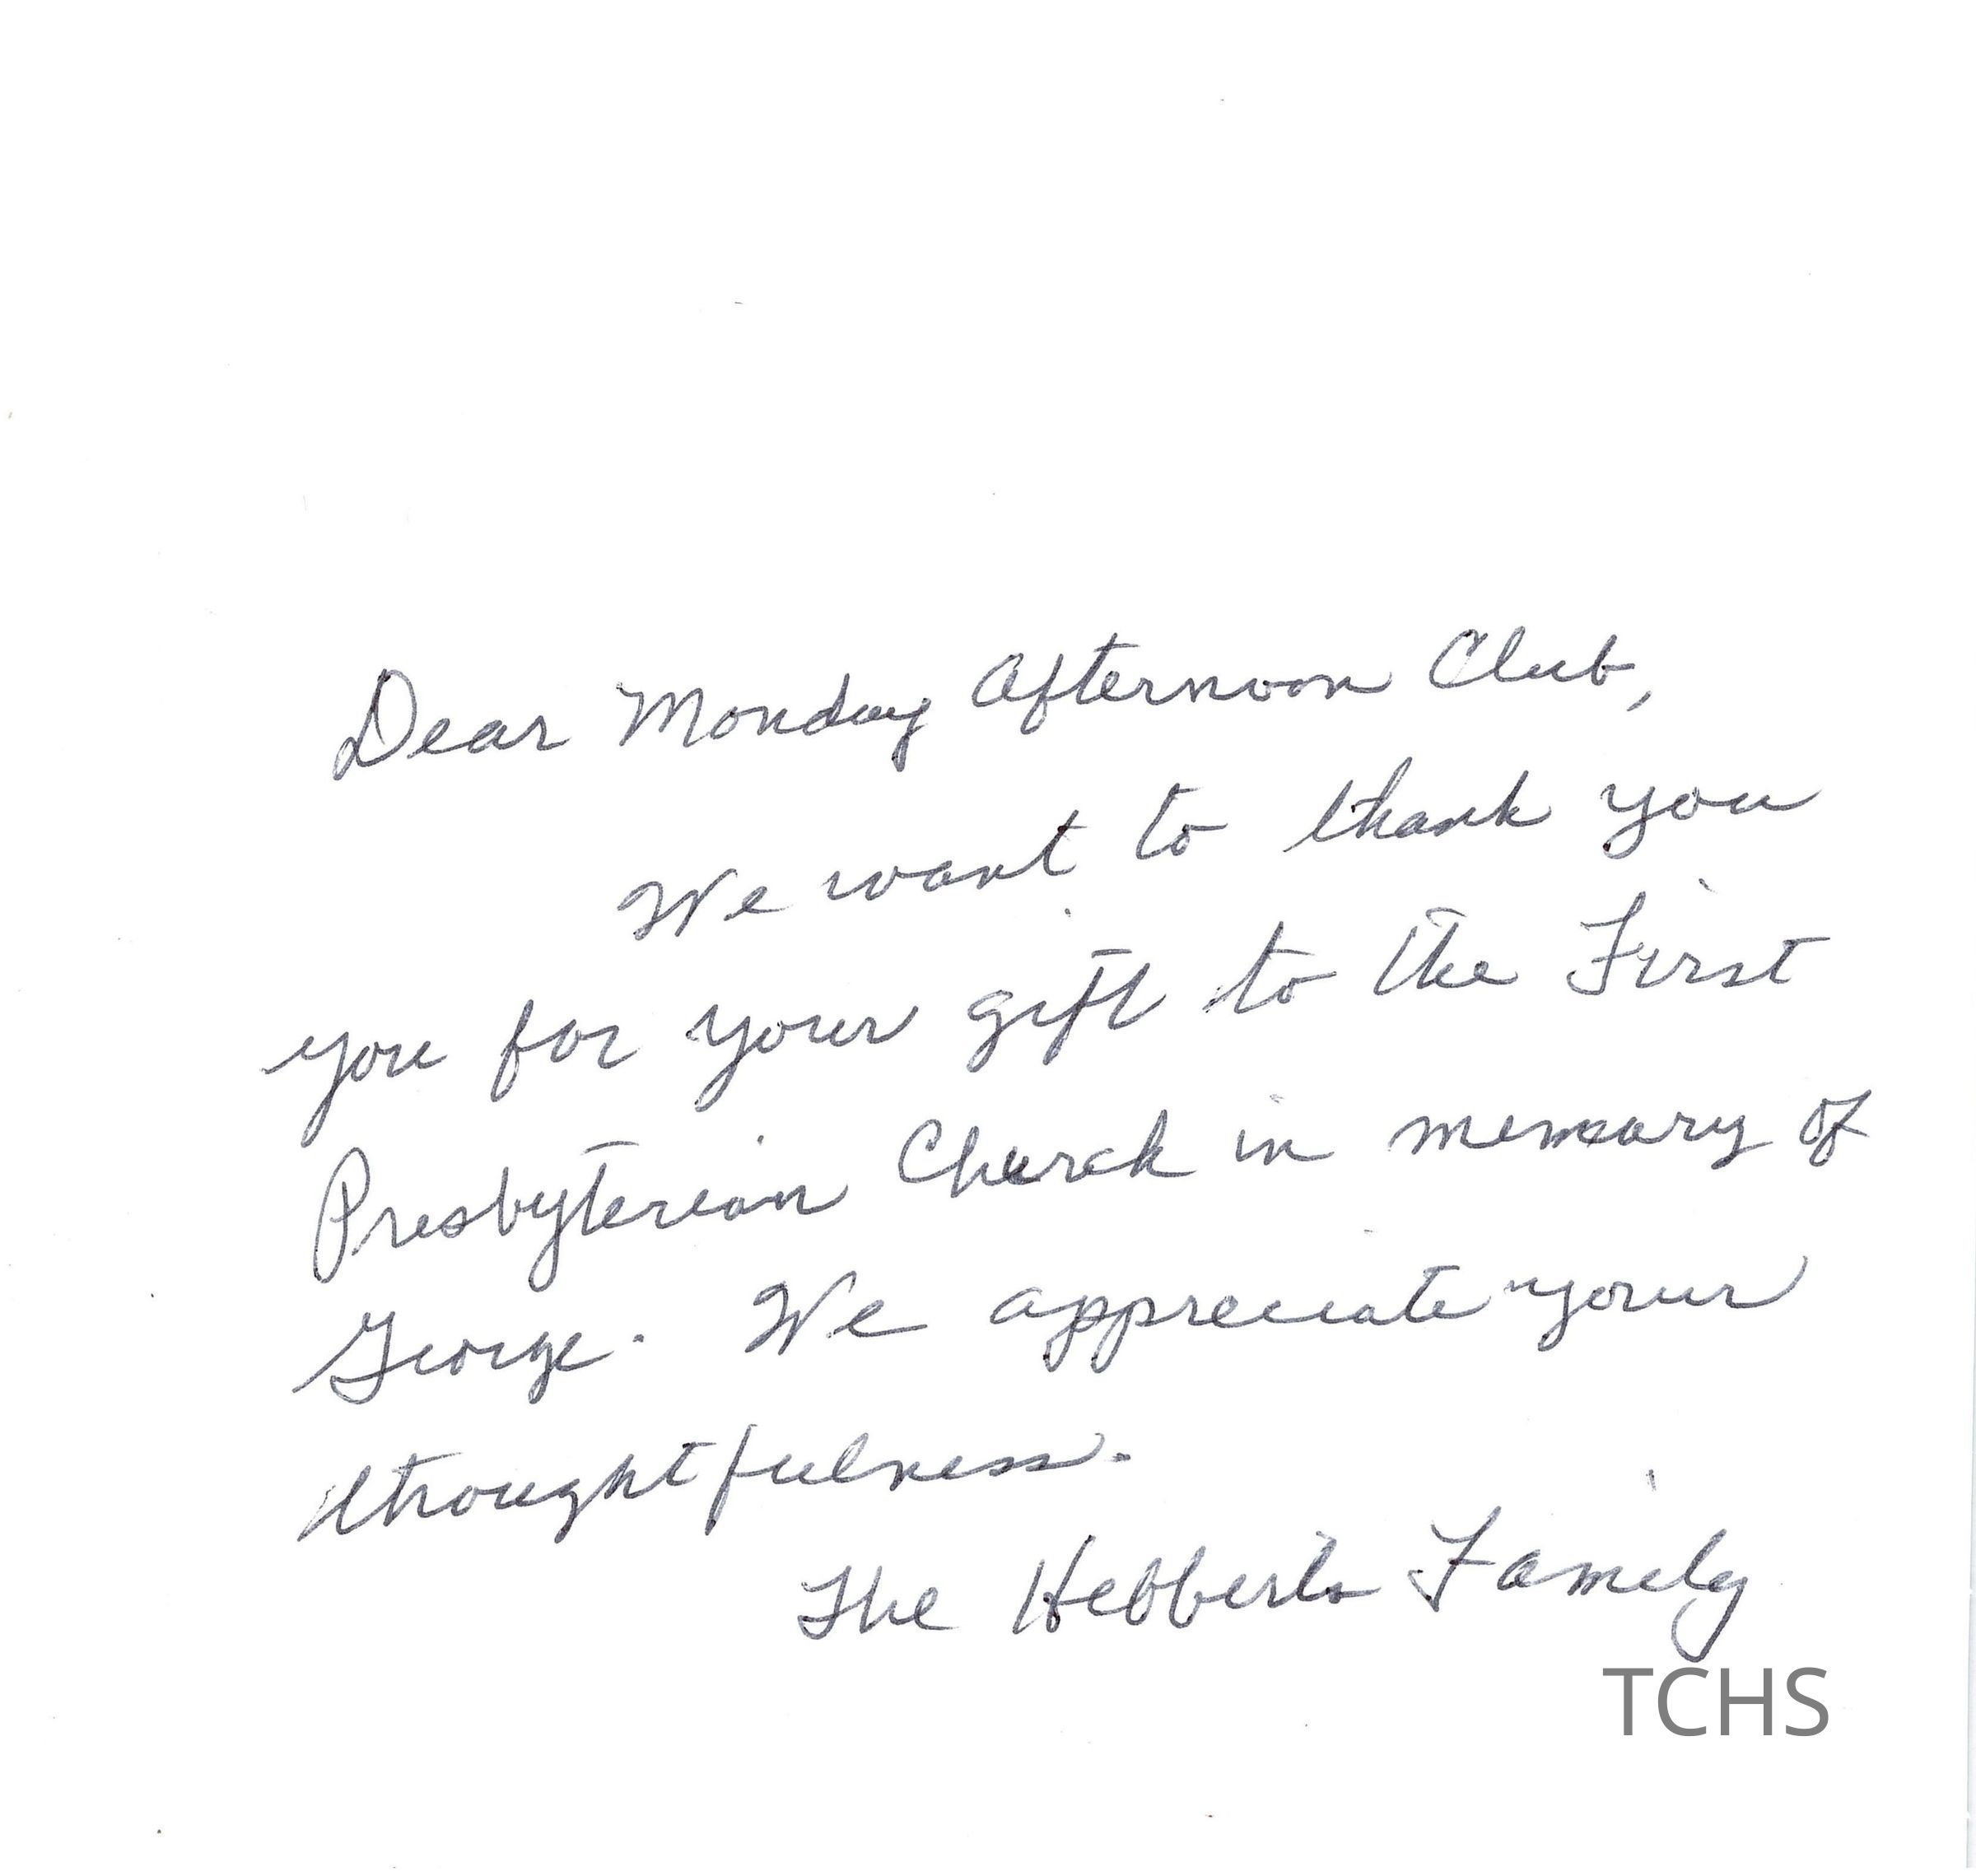 Dear Monday Afternoon Club,
We want to thank you
you for your gift to the First
Presbyterian Church in memory of
George. We appreciate your
thoughtfulness.
The Family
TCHS